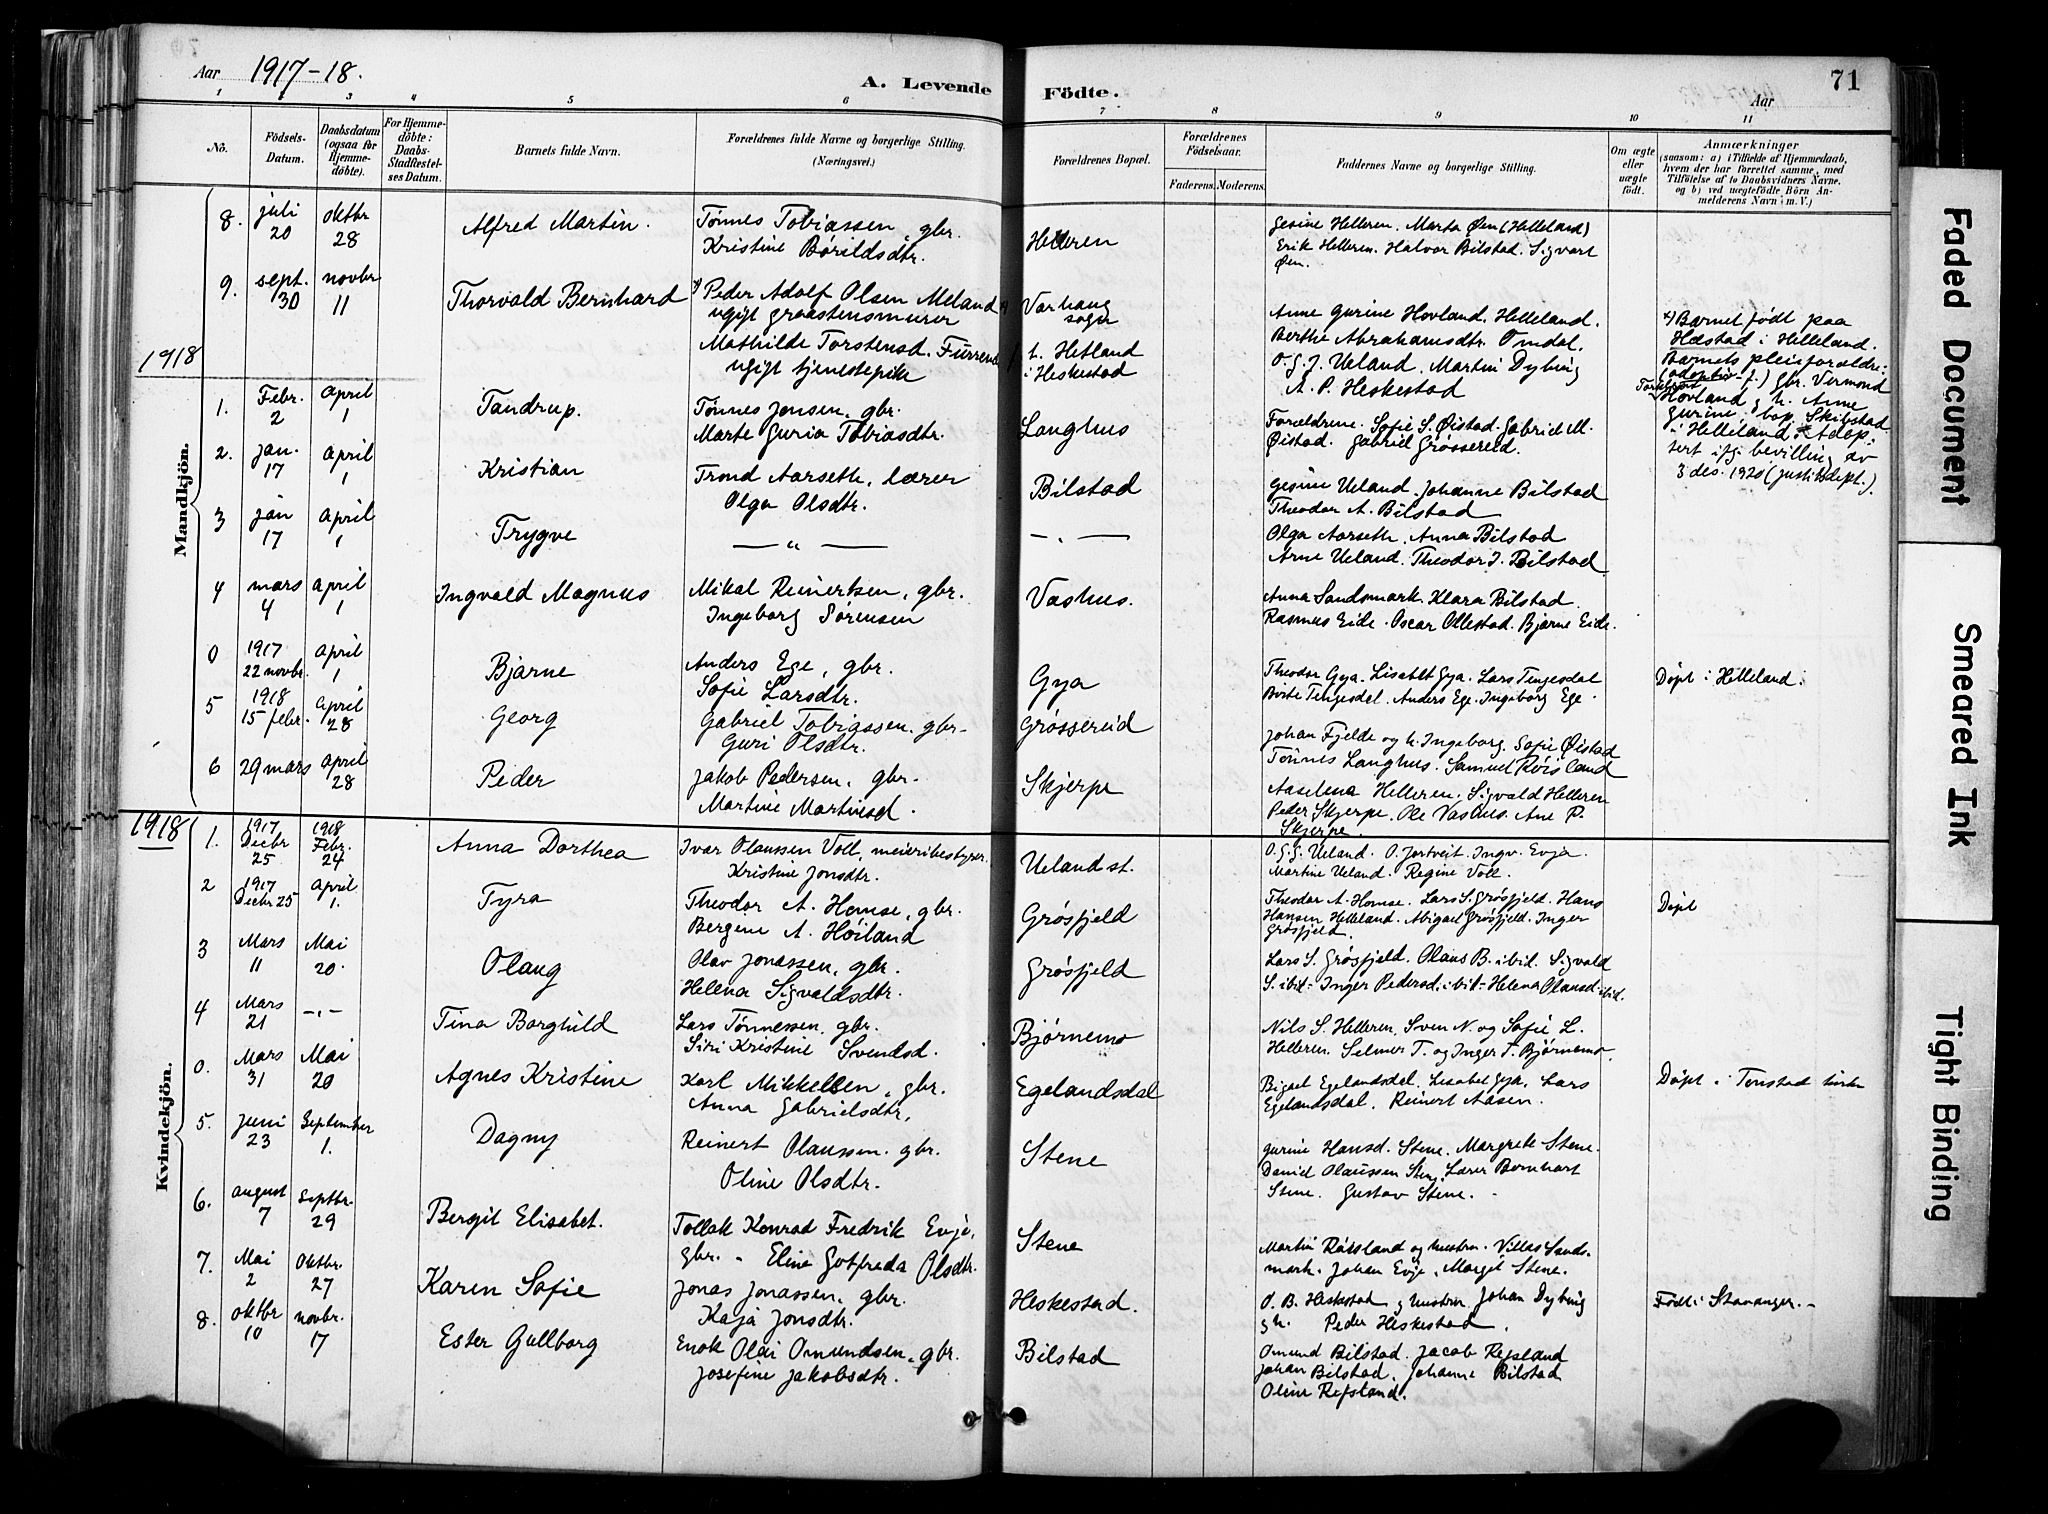 Aar 1917-18.
A. Levende Födte.
71
Aar
1 2 3 4 5 6 7 8 9 10 11
No.
Födsels-Datum.
Daabsdatum (ogsaa for Hjemmedöbte).
For Hjemmedöbte: Daabs-Stadfæstelses Datum.
Barnets fulde Navn.
Forældrenes fulde Navne og borgerlige Stilling. (Næringsvei.)
Forældrenes Bopæl.
Forældrenes Födselsaar.
Faderens. Moderens.
Faddernes Navne og borgerlige Stilling.
Om ægte eller uægte födt.
Anmærkninger
(saasom: a) i Tilfælde af Hjemmedaab, hvem der har forrettet samme, med Tilföielse af to Daabsvidners Navne, og b) ved uægtefödte Börn Anmelderens Navn, m. V.)
Mandkjön.
8. juli 20 oktbr 28 Alfred Martin. Tönnes Tobiassen, gbr. Helleren Gesine Helleren. Marta Øen (Helleland)
Kristine Bårildsdtr. Erik Helleren. Halvor Bilstad. Sigvart
Øen.
9. sept. 30 novbr 11 Thorvald Bernhard x) Peder Adolf Olsen Meland Varhaug Anne Gurine Hovland. Helleland. x) Barnet født paa
ugift graastensmurer sogn Berthe Abrahamsdtr. Omdal. Hæstad i Helleland.
Mathilde Torstensd. Furrene t. Hetland O. G. J. Ueland. Martin Dybing Barnets pleieforældre:
1918 ugift tjenestepike i Heskestad A. P. Heskestad (adoptiv-f.) gbr. Vermond
Torkelsen Hovland g h. Anne
Gurine, bop. Skibstad
i Helleland. Adop-
tert ifg. bevilling av
3 des. 1920 (justitsdept.).
1. Febr. 2 April 1 Tandrup. Tønnes Jonsen, gbr. Langhus Forældrene. Sofie S. Øistad. Gabriel M.
Marte Guria Tobiasdtr. Øistad. Gabriel Grøssereid.
2. Jan. 17 April 1 Kristian Trond Aarseth, lærer Bilstad Gesine Ueland. Johanne Bilstad
Olga Olsdtr. Theodor A. Bilstad
3 jan 17 april 1 Trygve — " — — " — Olga Aarseth. Anna Bilstad
Arne Ueland. Theodor J. Bilstad.
4 mars 4 April 1 Ingvald Magnus Mikal Reinertsen, gbr. Vashus. Anna Sandsmark. Klara Bilstad.
Ingeborg Sørensen Rasmus Eide. Oscar Ollestad. Bjarne Eide.
0 1917 22 novbr. April 1 Bjarne Anders Ege, gbr. Gya Theodor Gya. Lisabet Gya. Lars Tengesdal Døpt i Helleland.
Sofie Larsdtr. Birte Tengesdal. Anders Ege. Ingeborg Ege.
5 1918 15 febr. April 28 Georg Gabriel Tobiassen. gbr. Grøssereid Johan Fjelde og h. Ingeborg. Sofie Øistad
Guri Olsdtr. Tønnes Langhus. Samuel Røisland
6 29 mars april 28 Peder Jakob Pedersen. gbr. Skjerpe Aaselena Helleren. Sigvald Helleren
Martine Martinsd. Peder Skjerpe. Ole Vashus. Ane P.
Skjerpe.
1918
Kvindekjön.
1. 1917 Decbr 25 1918 Febr. 24 Anna Dorthea Ivar Olaussen Voll, meieribestyrer. Ueland st. O. G. J. Ueland. O. Jortveit. Ingv. Evja.
Kristine Jonsdtr. Martine Ueland. Regine Voll.
2 1917 Decbr 25 April 1. Tyra Theodor A. Homse, gbr. Grøsfjeld Theodor A. Homse. Lars S. Grøsfjeld. Hans Døpt
Bergine A. Høiland Hansen Helleland. Abigael Grøsfjeld. Inger
Grøsfjeld.
3 Mars 11 Mai 20. Olaug Olav Jonassen, gbr. Grøsfjeld Lars S. Grøsfjeld. Olaus B. ibid. Sigvald
Helena Sigvaldsdtr. S. ibid - Inger Pedersd. ibid - Helena Olausd. ibid.
4 Mars 21 — " — Tina Borghild Lars Tønnessen, gbr. Bjørnemo Nils S. Helleren, Sven N. og Sofie L.
Siri Kristine Svendsd. Helleren. Selmer T. og Inger T. Bjørnemo.
0. Mars 31 Mai 20 Agnes Kristine Karl Mikkelsen, gbr. Egelandsdal Bigael Egelandsdal. Lisabet Gya. Lars Døpt i Tonstad kirke
Anna Gabrielsdtr. Egelandsdal. Reinert Aasen.
5. Juni 23 September 1. Dagny Reinert Olaussen. gbr. Stene Gurine Hansd. Stene. Margrete Stene.
Oline Olsdtr. Daniel Olaussen Stene. Lærer Bernhart
Stene. Gustav Stene.
6. August 7 Septbr. 29 Bergit Elisabet. Tollak Konrad Fredrik Evje, Stene Martin Røisland og hustru. Villas Sands-
gbr. - Eline Gotfreda Olsdtr. mark. Johan Evje. Margit Stene.
7. Mai 2 Oktbr. 27 Karen Sofie Jonas Jonassen. gbr. Heskestad. O. B. Heskestad g hustru. Johan Dybing Født i Stavanger.
Kaja Jonsdtr. g h. Peder Heskestad.
8. oktbr 10 novbr. 17 Ester Gullborg Enok Olai Omundsen. gbr. Bilstad Omund Bilstad. Jacob Refsland
Josefine Jakobsdtr. Johan Bilstad. Johanne Bilstad
Oline Refsland.
Faded Document
Smeared Ink
Tight Binding